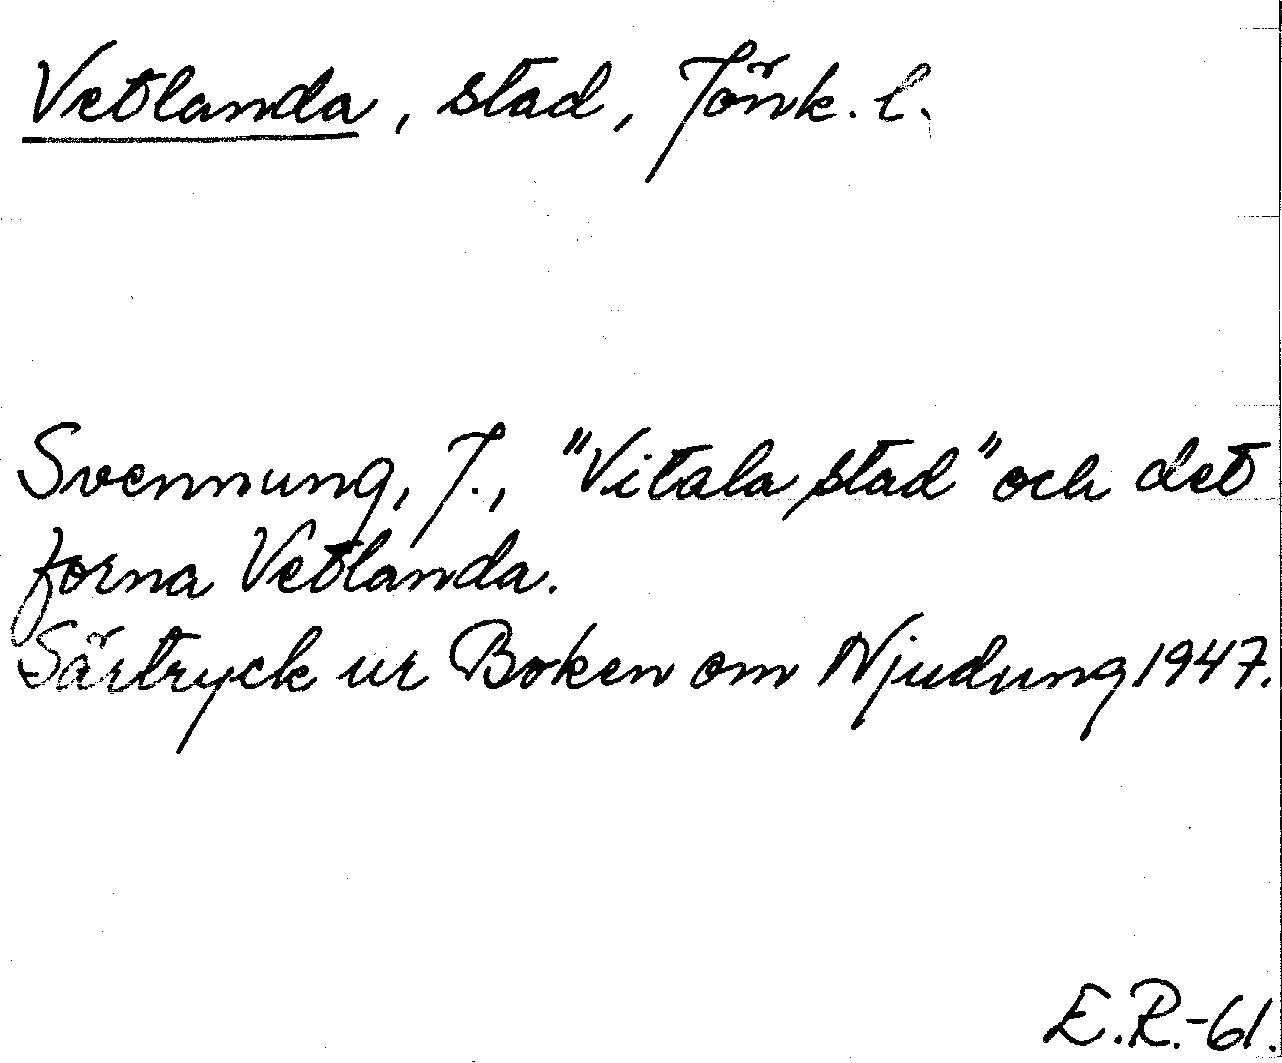 Vetlanda, stad, Jönk. l.
Svennung, J., "Vitala stad" och det
forna Vetlanda.
Särtryck ur Boken om Njudung 1947.
E.R.-61.